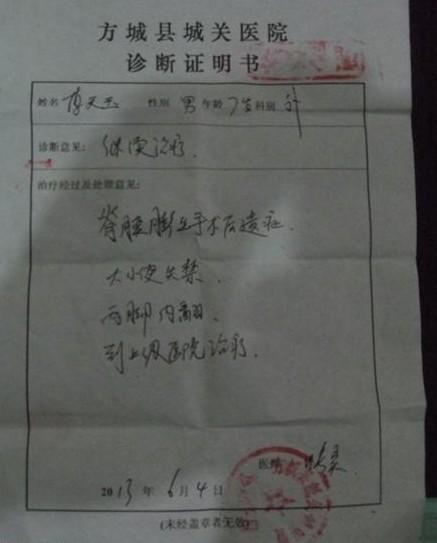 方城县城关医院
诊断证明书
姓名 性别 男 年龄 7岁 科别 外
诊断意见: 继续治疗.
治疗经过及处理意见:
脊膜膨出手术后遗症.
大小便失禁
两脚内翻.
到上级医院治疗.
医师:
2013年6月4日
(未经盖章者无效)